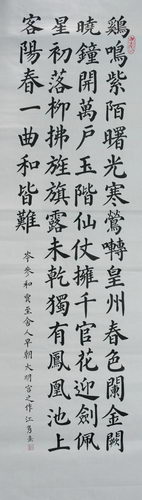 鷄鳴紫陌曙光寒鶯囀皇州春色闌金闕
曉鐘開萬戶玉階仙仗擁千官花迎劍佩
星初落柳拂旌旗露未乾獨有鳳凰池上
客陽春一曲和皆難
岑參和賈至舍人早朝大明宮之作江